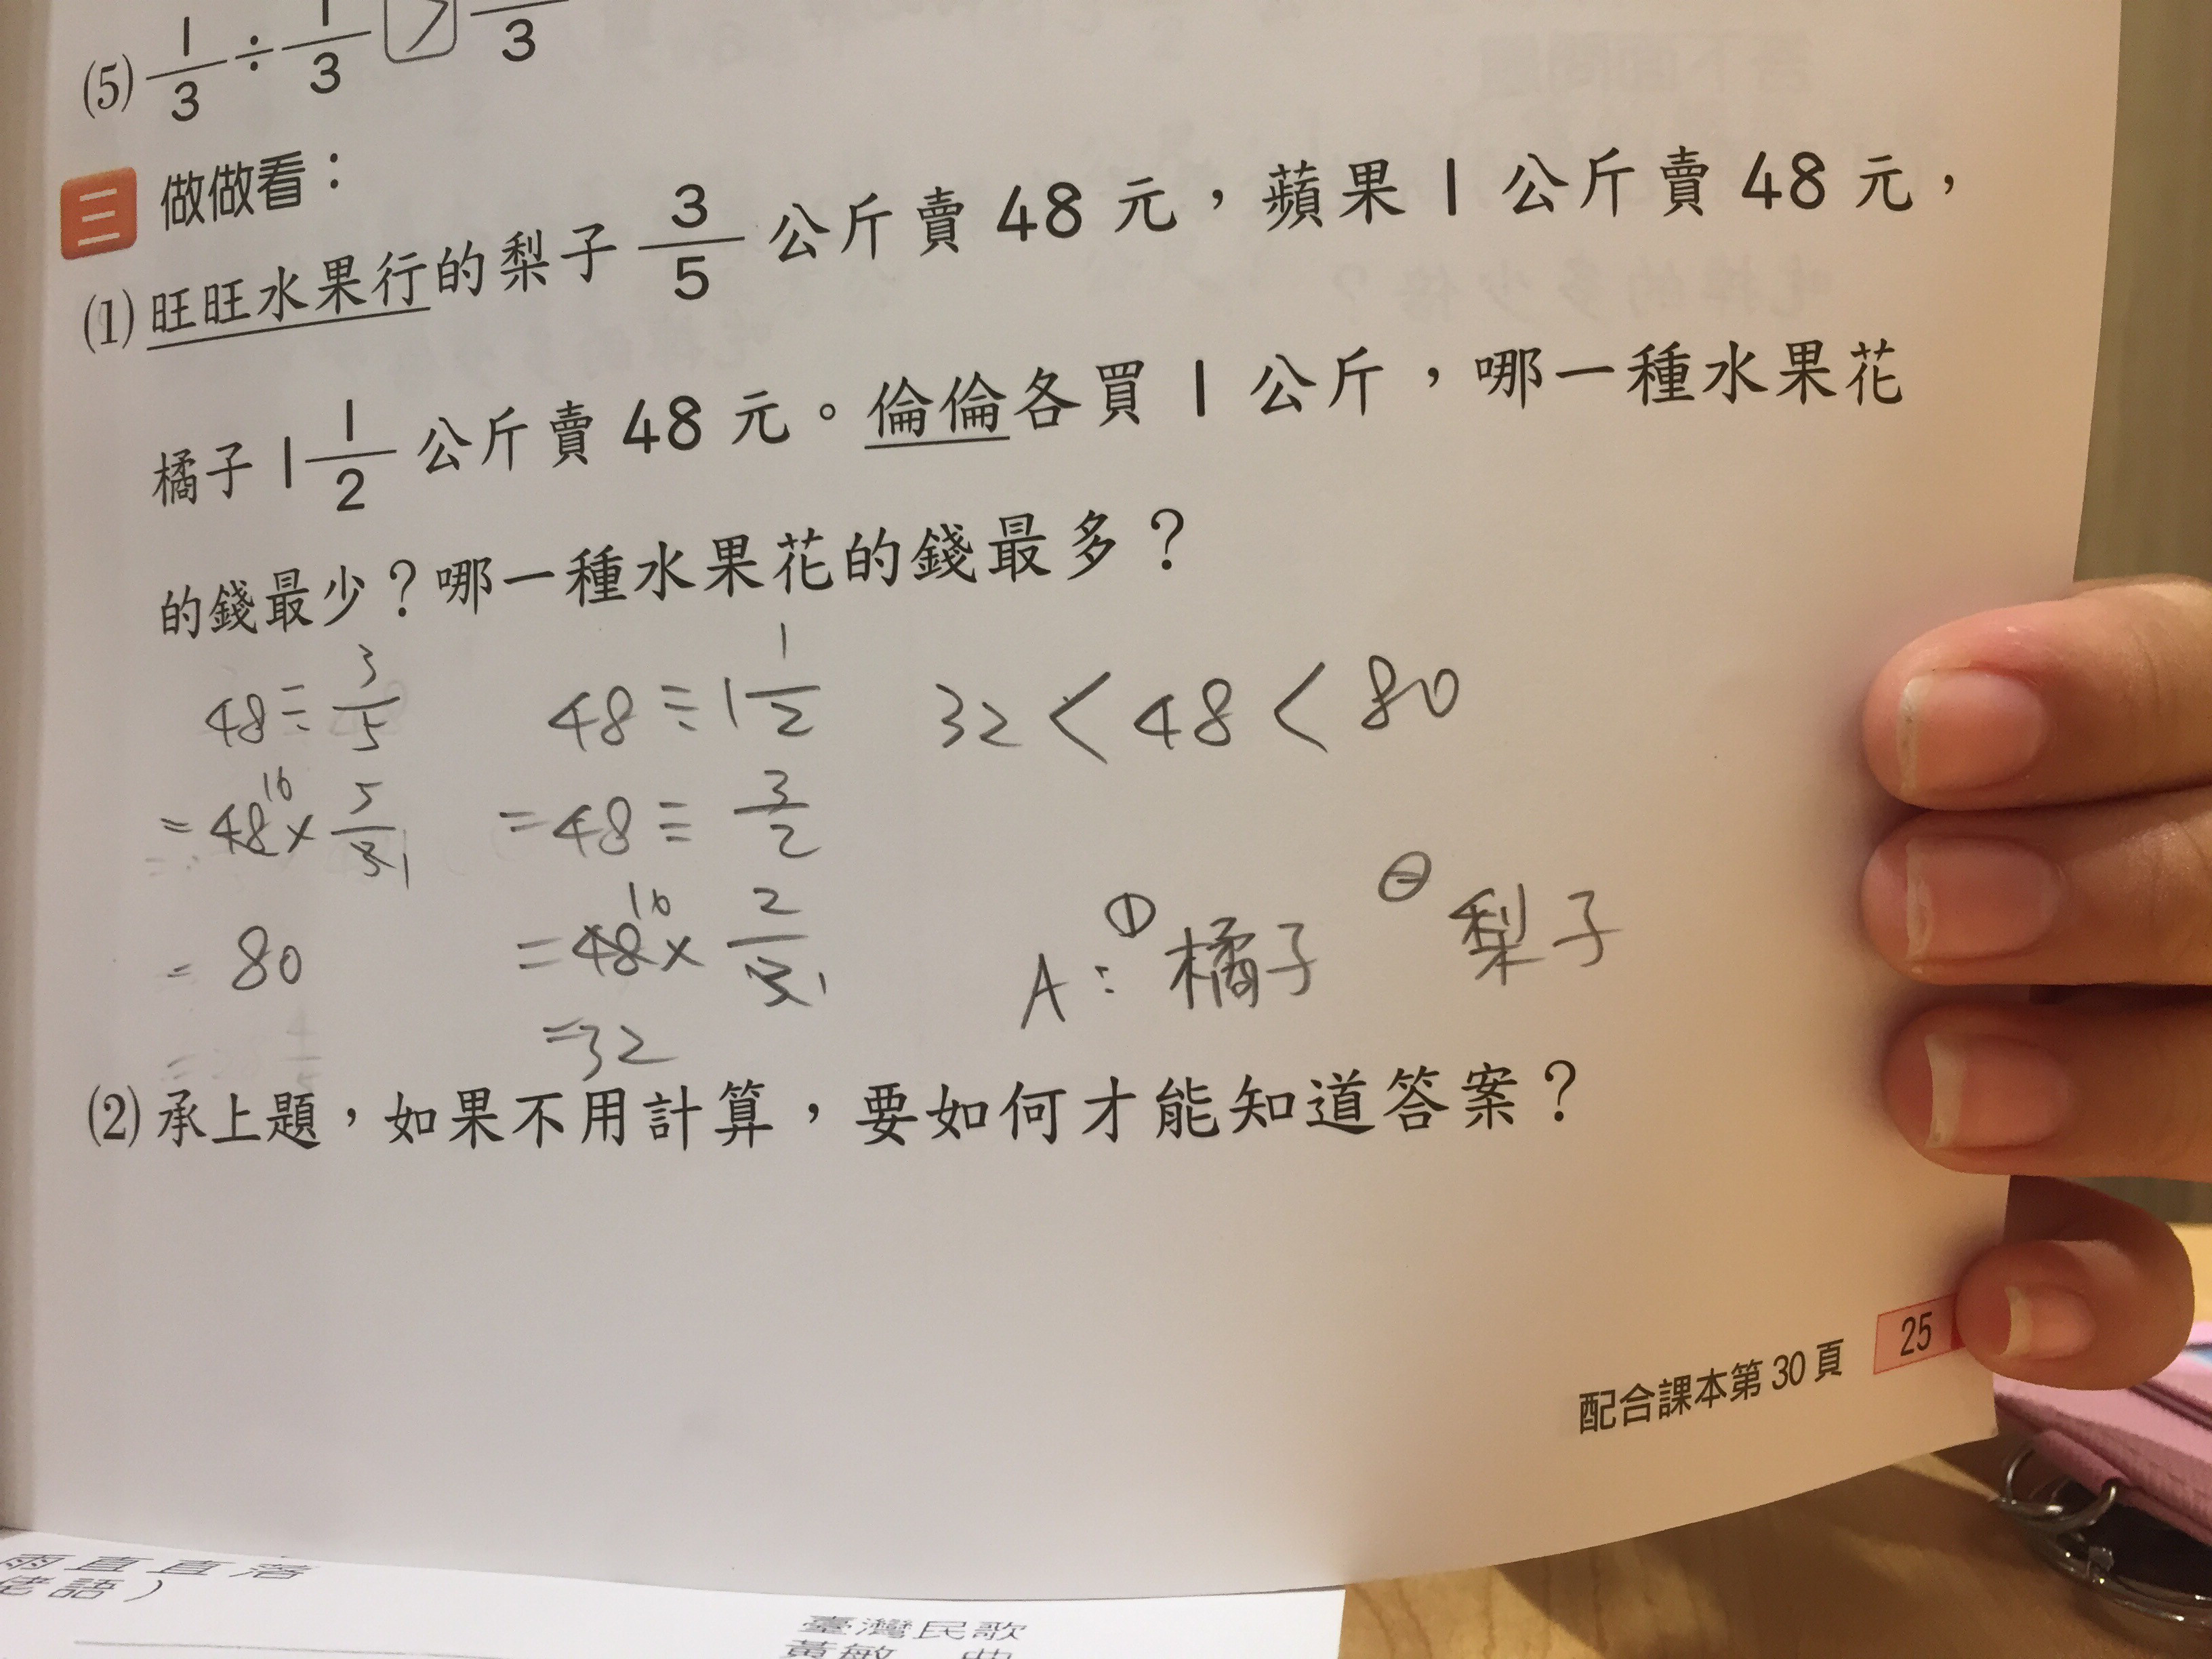 (5) 1/3 ÷ 1/3 > /3
三 做做看：
(1) 旺旺水果行的梨子 3/5 公斤賣 48 元，蘋果 1 公斤賣 48 元，
橘子 1 1/2 公斤賣 48 元。倫倫各買 1 公斤，哪一種水果花
的錢最少？哪一種水果花的錢最多？
48 ÷ 3/5
= 48 16 × 5/3 1
= 80
48 ÷ 1 1/2
= 48 ÷ 3/2
= 48 16 × 2/3 1
= 32
32 < 48 < 80
A：① 橘子 ㊀ 梨子
(2) 承上題，如果不用計算，要如何才能知道答案？
配合課本第 30 頁 25
雨直直落
佬語）
臺灣民歌
黃敏 曲